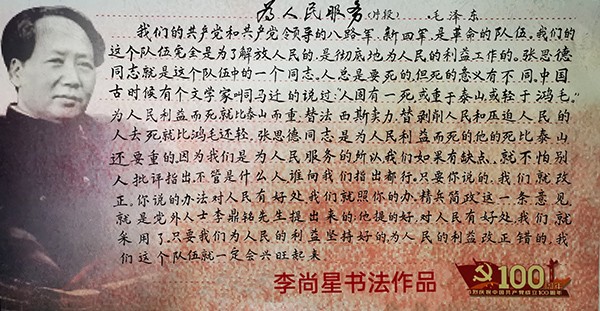 为人民服务(片段) 毛泽东
我们的共产党和共产党领导的八路军、新四军,是革命的队伍。我们的
这个队伍完全是为了解放人民的,是彻底地为人民的利益工作的。张思德
同志就是这个队伍中的一个同志。人总是要死的,但死的意义有不同。中国
古时候有个文学家叫司马迁的说过:“人固有一死,或重于泰山,或轻于鸿毛。”
为人民利益而死,就比泰山而重,替法西斯卖力,替剥削人民和压迫人民的
人去死,就比鸿毛还轻。张思德同志是为人民利益而死的,他的死比泰山
还要重的。因为我们是为人民服务的,所以我们如果有缺点,就不怕别
人批评指出。不管是什么人,谁向我们指出都行。只要你说的,我们就改
正。你说的办法对人民有好处,我们就照你的办。精兵简政这一条意见,
就是党外人士李鼎铭先生提出来的;他提的好,对人民有好处,我们就
采用了。只要我们为人民的利益坚持好的,为人民的利益改正错的,我
们这个队伍就一定会兴旺起来
李尚星书法作品
100周年
热烈庆祝中国共产党成立100周年